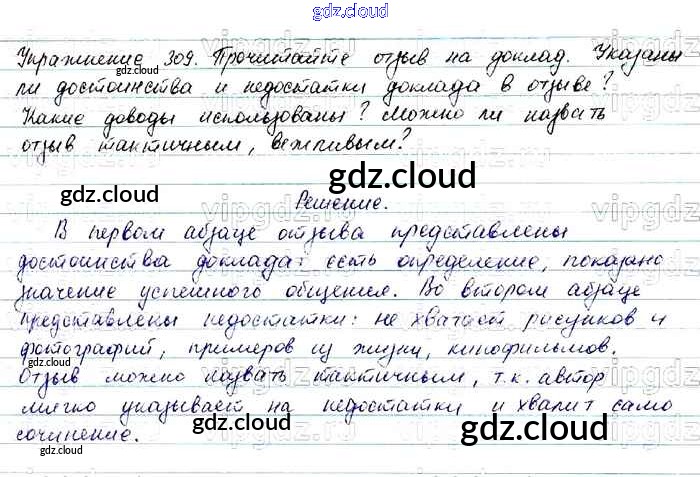 gdz.cloud
Упражнение 309. Прочитайте отзыв на доклад. Указаны
ли достоинства и недостатки доклада в отзыве?
Какие доводы использованы? Можно ли назвать
отзыв тактичным, вежливым?
Решение.
В первом абзаце отзыва представлены
достоинства доклада: есть определение, показано
значение успешного общения. Во втором абзаце
представлены недостатки: не хватает рисунков и
фотографий, примеров из жизни, кинофильмов.
Отзыв можно назвать тактичным, т.к. автор
мягко указывает на недостатки и хвалит само
сочинение.
gdz.cloud
gdz.cloud
gdz.cloud
gdz.cloud
gdz.cloud
gdz.cloud
gdz.cloud
gdz.cloud